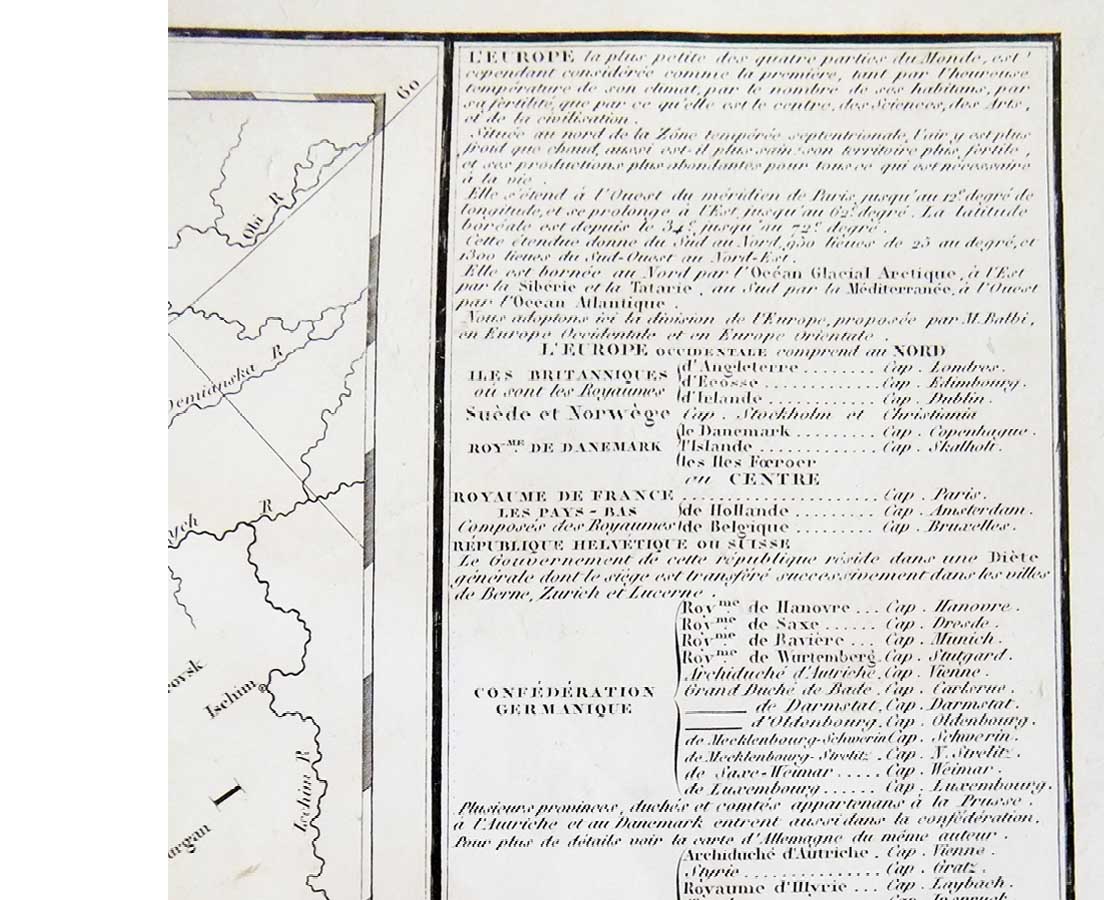 60
Obi R
Demianska R
R
ych
rovsk
Ischim
Ischim R
I
argan
L'EUROPE la plus petite des quatre parties du Monde, est
cependant considérée comme la première, tant par l'heureuse
température de son climat, par le nombre de ses habitans, par
sa fertilité, que par ce qu'elle est le centre, des Sciences, des Arts,
et de la civilisation.
Située au nord de la Zône tempérée septentrionale, l'air y est plus
froid que chaud, aussi est-il plus sain; son territoire plus fertile,
et ses productions plus abondantes pour tous ce qui est nécessaire
à la vie
Elle s'étend à l'Ouest du méridien de Paris, jusqu'au 12e degré de
longitude, et se prolonge à l'Est, jusqu'au 62e degré. La latitude
boréale est depuis le 34e jusqu'au 72e degré.
Cette étendue donne du Sud au Nord, 950 lieues de 25 au degré, et
1300 lieues du Sud-Ouest au Nord-Est.
Elle est bornée au Nord par l'Océan Glacial Arctique, à l'Est
par la Sibérie et la Tatarie, au Sud par la Méditerranée, à l'Ouest
par l'Océan Atlantique.
Nous adoptons ici la division de l'Europe, proposée par M. Balbi,
en Europe Occidentale et en Europe Orientale.
L'EUROPE OCCIDENTALE comprend au NORD
ILES BRITANNIQUES
où sont les Royaumes
d'Angleterre ........ Cap. Londres.
d'Ecosse ............ Cap. Edimbourg.
d'Irlande ........... Cap. Dublin.
Suède et Norwège Cap. Stockholm et Christiania
ROYME DE DANEMARK
le Danemark ......... Cap. Copenhague.
l'Islande ............ Cap. Skalholt.
les Iles Fœroer
au CENTRE
ROYAUME DE FRANCE .................... Cap. Paris.
LES PAYS-BAS
Composés des Royaumes
de Hollande ......... Cap. Amsterdam.
de Belgique ......... Cap. Bruxelles.
RÉPUBLIQUE HELVÉTIQUE OU SUISSE
Le Gouvernement de cette république réside dans une Diète
générale dont le siège est transféré successivement dans les villes
de Berne, Zurich et Lucerne.
CONFÉDÉRATION
GERMANIQUE
Royme de Hanovre ... Cap. Hanovre.
Royme de Saxe ...... Cap. Dresde.
Royme de Bavière ... Cap. Munich.
Royme de Wurtemberg. Cap. Stutgard.
Archiduché d'Autriche. Cap. Vienne.
Grand Duché de Bade. Cap. Carlsrue.
de Darmstat, Cap. Darmstat.
d'Oldenbourg, Cap. Oldenbourg.
de Mecklenbourg-Schwerin Cap. Schwerin.
de Mecklenbourg-Strelitz. Cap. N. Strelitz.
de Saxe-Weimar ..... Cap. Weimar.
de Luxembourg ...... Cap. Luxembourg.
Plusieurs provinces, duchés et comtés appartenans à la Prusse.
à l'Autriche et au Danemark entrent aussi dans la confédération.
Pour plus de détails voir la carte d'Allemagne du même auteur.
Archiduché d'Autriche. Cap. Vienne.
Styrie ............... Cap. Gratz.
Royaume d'Illyrie ... Cap. Laybach.